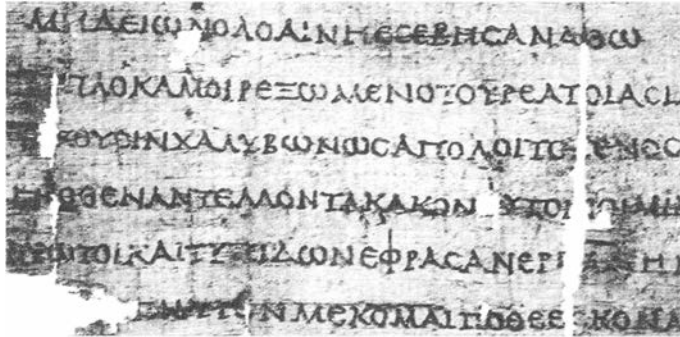 ΜΗΔΕΙΩΝΟΛΟΑΙΝΗΕϹΕΒΗϹΑΝΑΘΩ
ΠΛΟΚΑΜΟΙΡΕΞΩΜΕΝΟΤΟΥΡΕΑΤΟΙΑϹΙ
ΚΟΥϹΙΝΧΑΛΥΒΩΝΩϹΑΠΟΛΟΙΤΟΓΕΝΟϹ
ΟΘΕΝΑΝΤΕΛΛΟΝΤΑΚΑΚΟΝ ΥΤΟΝ
ΩΤΟΙΚΑΙΤΥΠΙΔΩΝΕΦΡΑϹΑΝΕΡΓ
ΤΟΝΜΕΚΟΜΑΙΠΟΘΕΕϹΚΟΝΑ